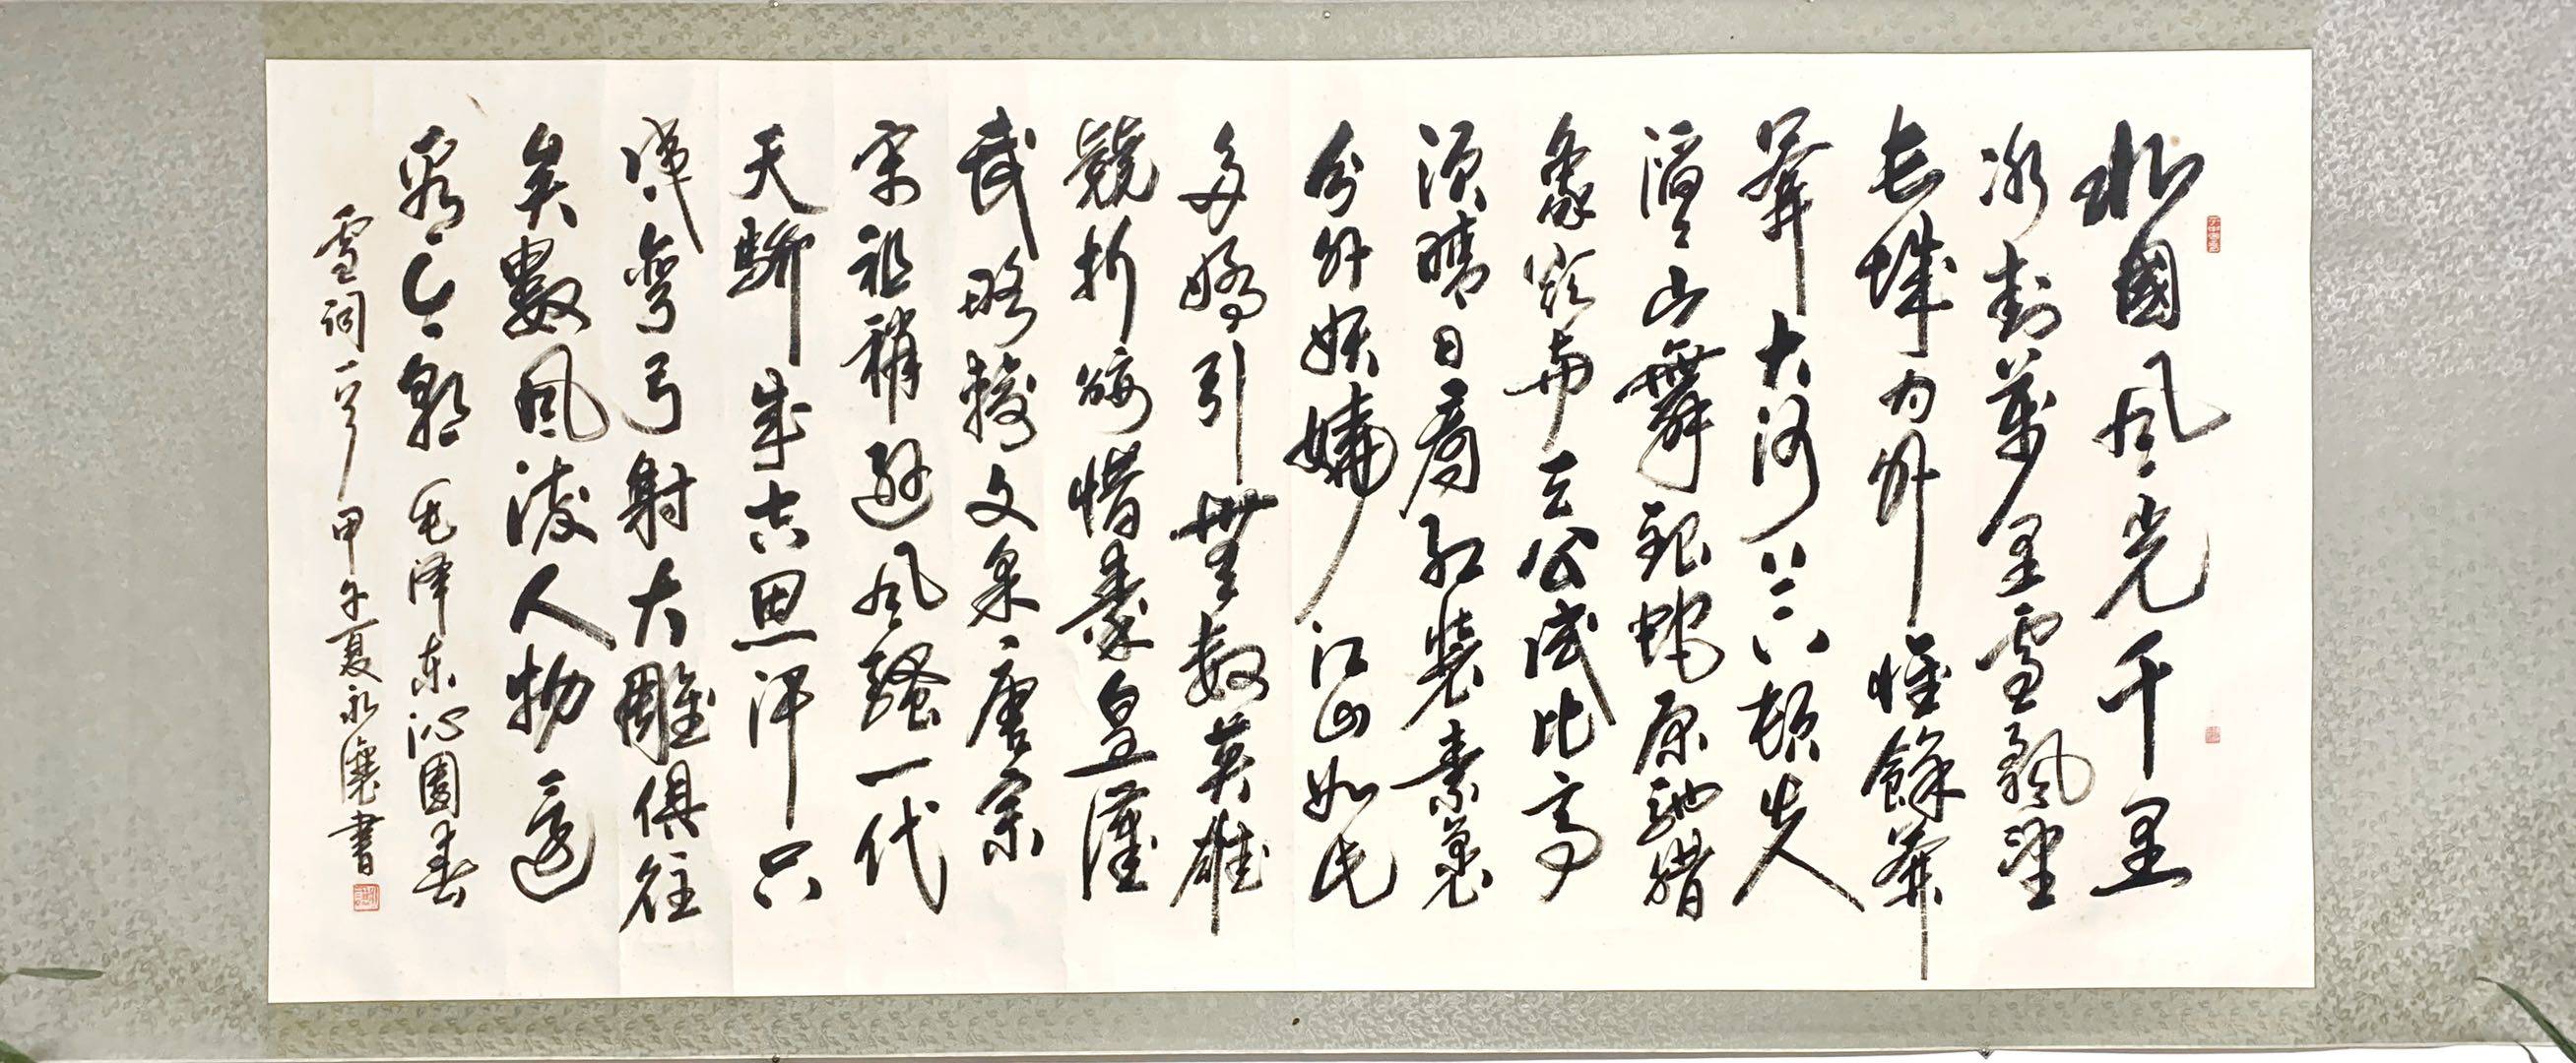 北國風光千里
冰封萬里雪飄望
長城內外惟餘莽
莽大河上下頓失
滔滔山舞銀蛇原馳蠟
象欲與天公試比高
須晴日看紅裝素裹
分外妖嬈江山如此
多嬌引無數英雄
競折腰惜秦皇漢
武略輸文采唐宗
宋祖稍遜風騷一代
天驕成吉思汗只
識彎弓射大雕俱往
矣數風流人物還
看今朝毛澤東沁園春
雪詞一首甲午夏永書